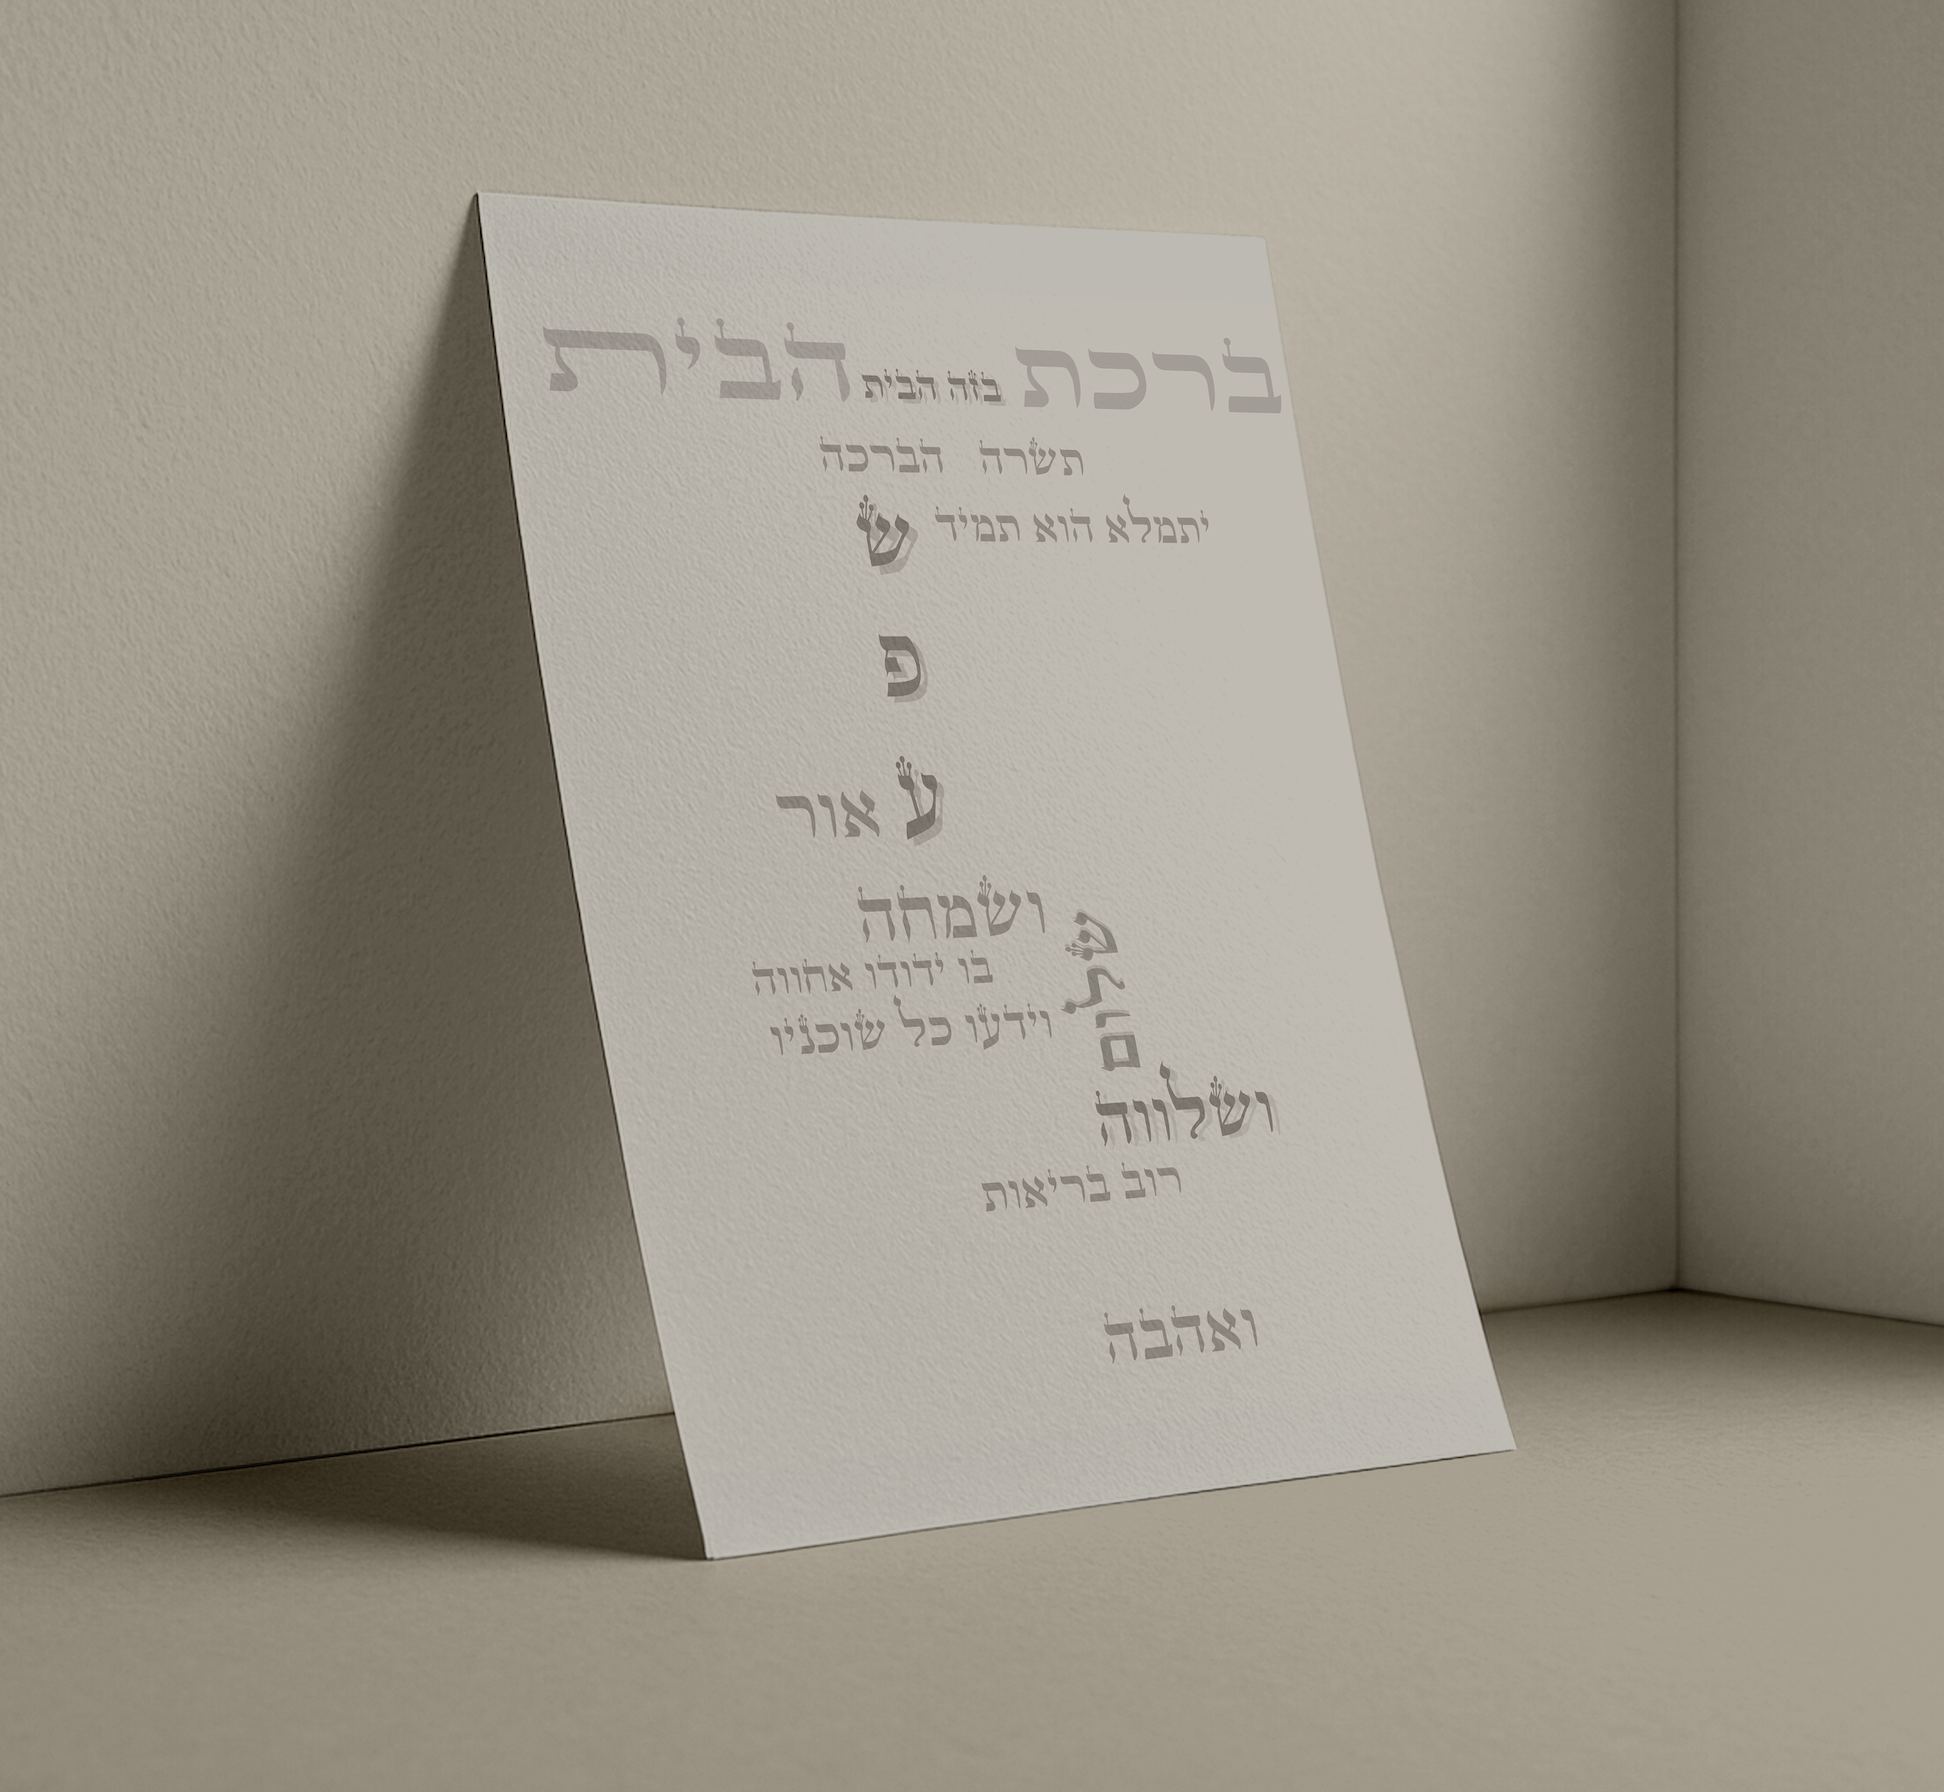 ברכת בזה הבית הבית
תשרה הברכה
יתמלא הוא תמיד ש
פ
ע אור
ושמחה
בו ידודו אחווה
וידעו כל שוכניו
שלום
ושלווה
רוב בריאות
ואהבה